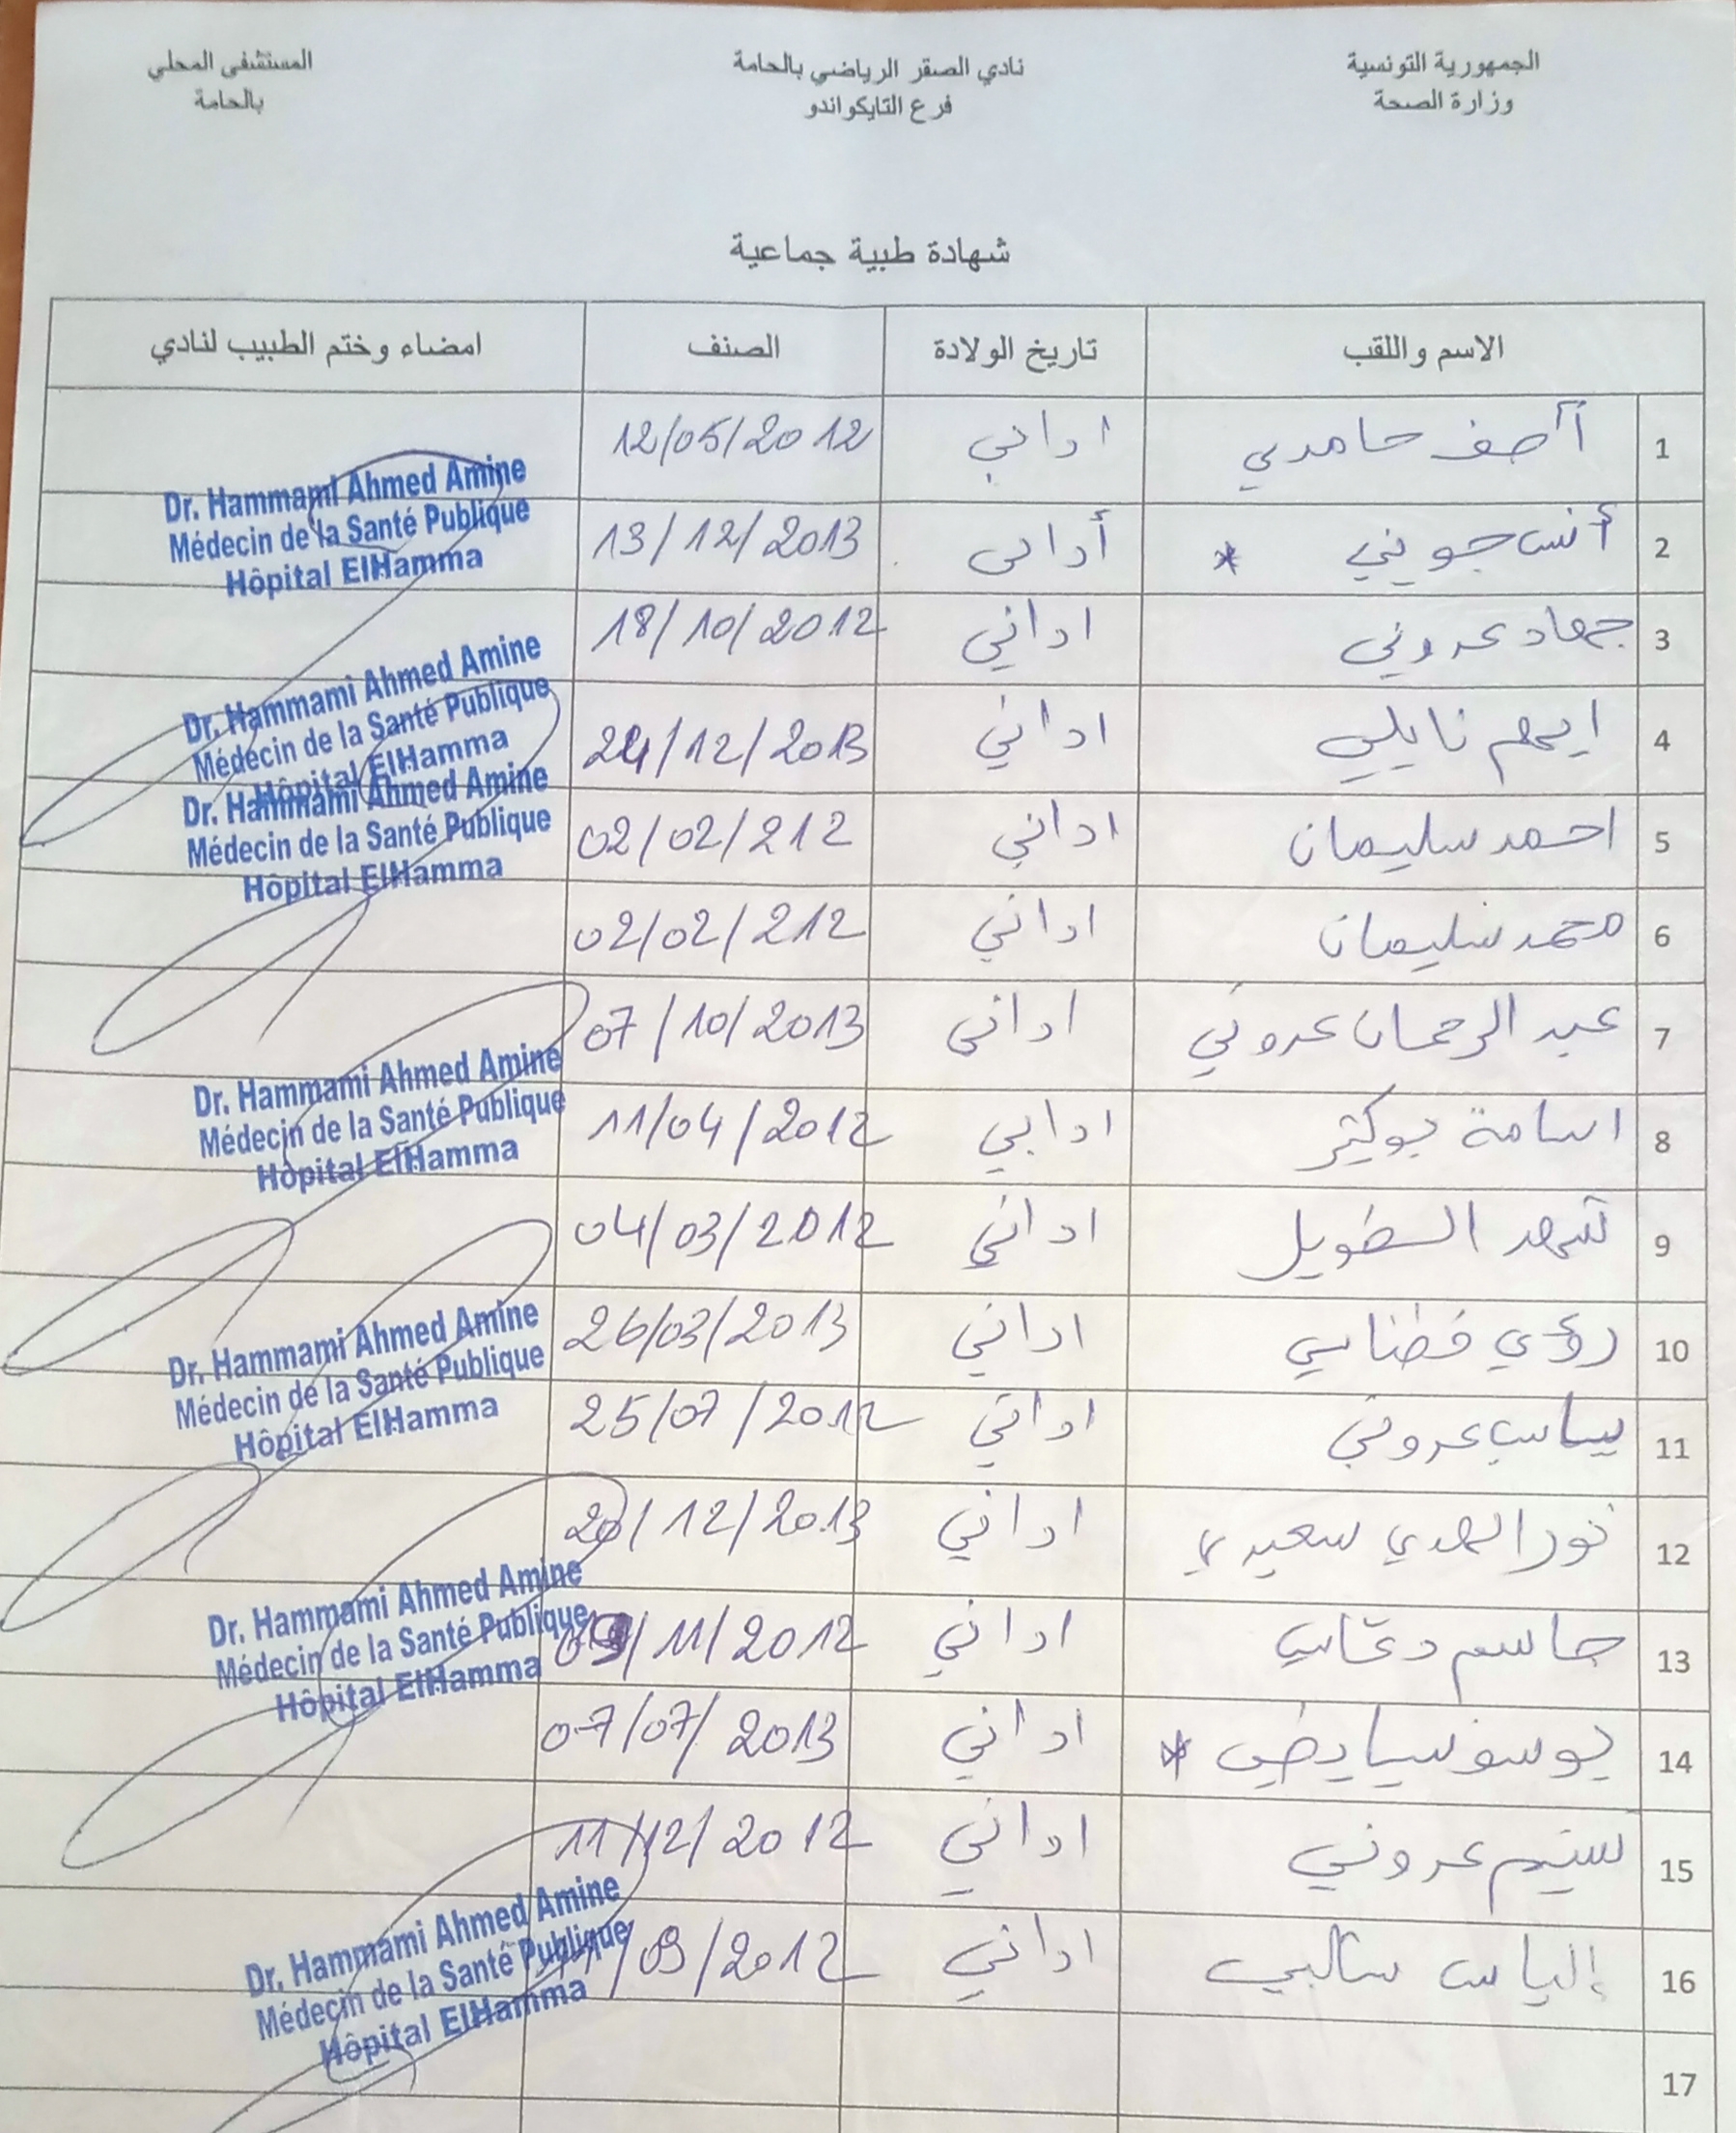 الجمهورية التونسية
وزارة الصحة
نادي الصقر الرياضي بالحامة
فرع التايكواندو
المستشفى المحلي
بالحامة
شهادة طبية جماعية
الاسم واللقب تاريخ الولادة الصنف امضاء وختم الطبيب لنادي
1 آصف حامدي اداني 12/05/2012
2 أنس جويني * أداني 13/12/2013
3 جهاد عروني اداني 18/10/2012
4 ايهم نايلي اداني /12/2013
5 احمد سليمان اداني 02/02/212
6 محمد سليمان اداني 02/02/212
7 عبد الرحمان عروني اداني 07/10/2013
8 اسامة بوكثير اداني 11/04/2012
9 شهد الطويل اداني 04/03/2012
10 رؤى اداني 26/03/2013
11 عروني اداني 25/07/2012
12 نور الهدي سعيدي اداني 20/12/2013
13 جاسم اداني /11/2012
14 يوسف * اداني 07/07/2013
15 عروني اداني 11/12/2012
16 إلياس اداني /09/2012
17
Dr. Hammami Ahmed Amine
Médecin de la Santé Publique
Hôpital ElHamma
Dr. Hammami Ahmed Amine
Médecin de la Santé Publique
Hôpital ElHamma
Dr. Hammami Ahmed Amine
Médecin de la Santé Publique
Hôpital ElHamma
Dr. Hammami Ahmed Amine
Médecin de la Santé Publique
Hôpital ElHamma
Dr. Hammami Ahmed Amine
Médecin de la Santé Publique
Hôpital ElHamma
Dr. Hammami Ahmed Amine
Médecin de la Santé Publique
Hôpital ElHamma
Dr. Hammami Ahmed Amine
Médecin de la Santé Publique
Hôpital ElHamma